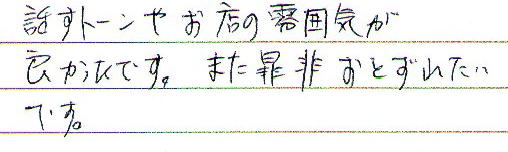 話すトーンやお店の雰囲気が
良かったです。また是非おとずれたい
です。